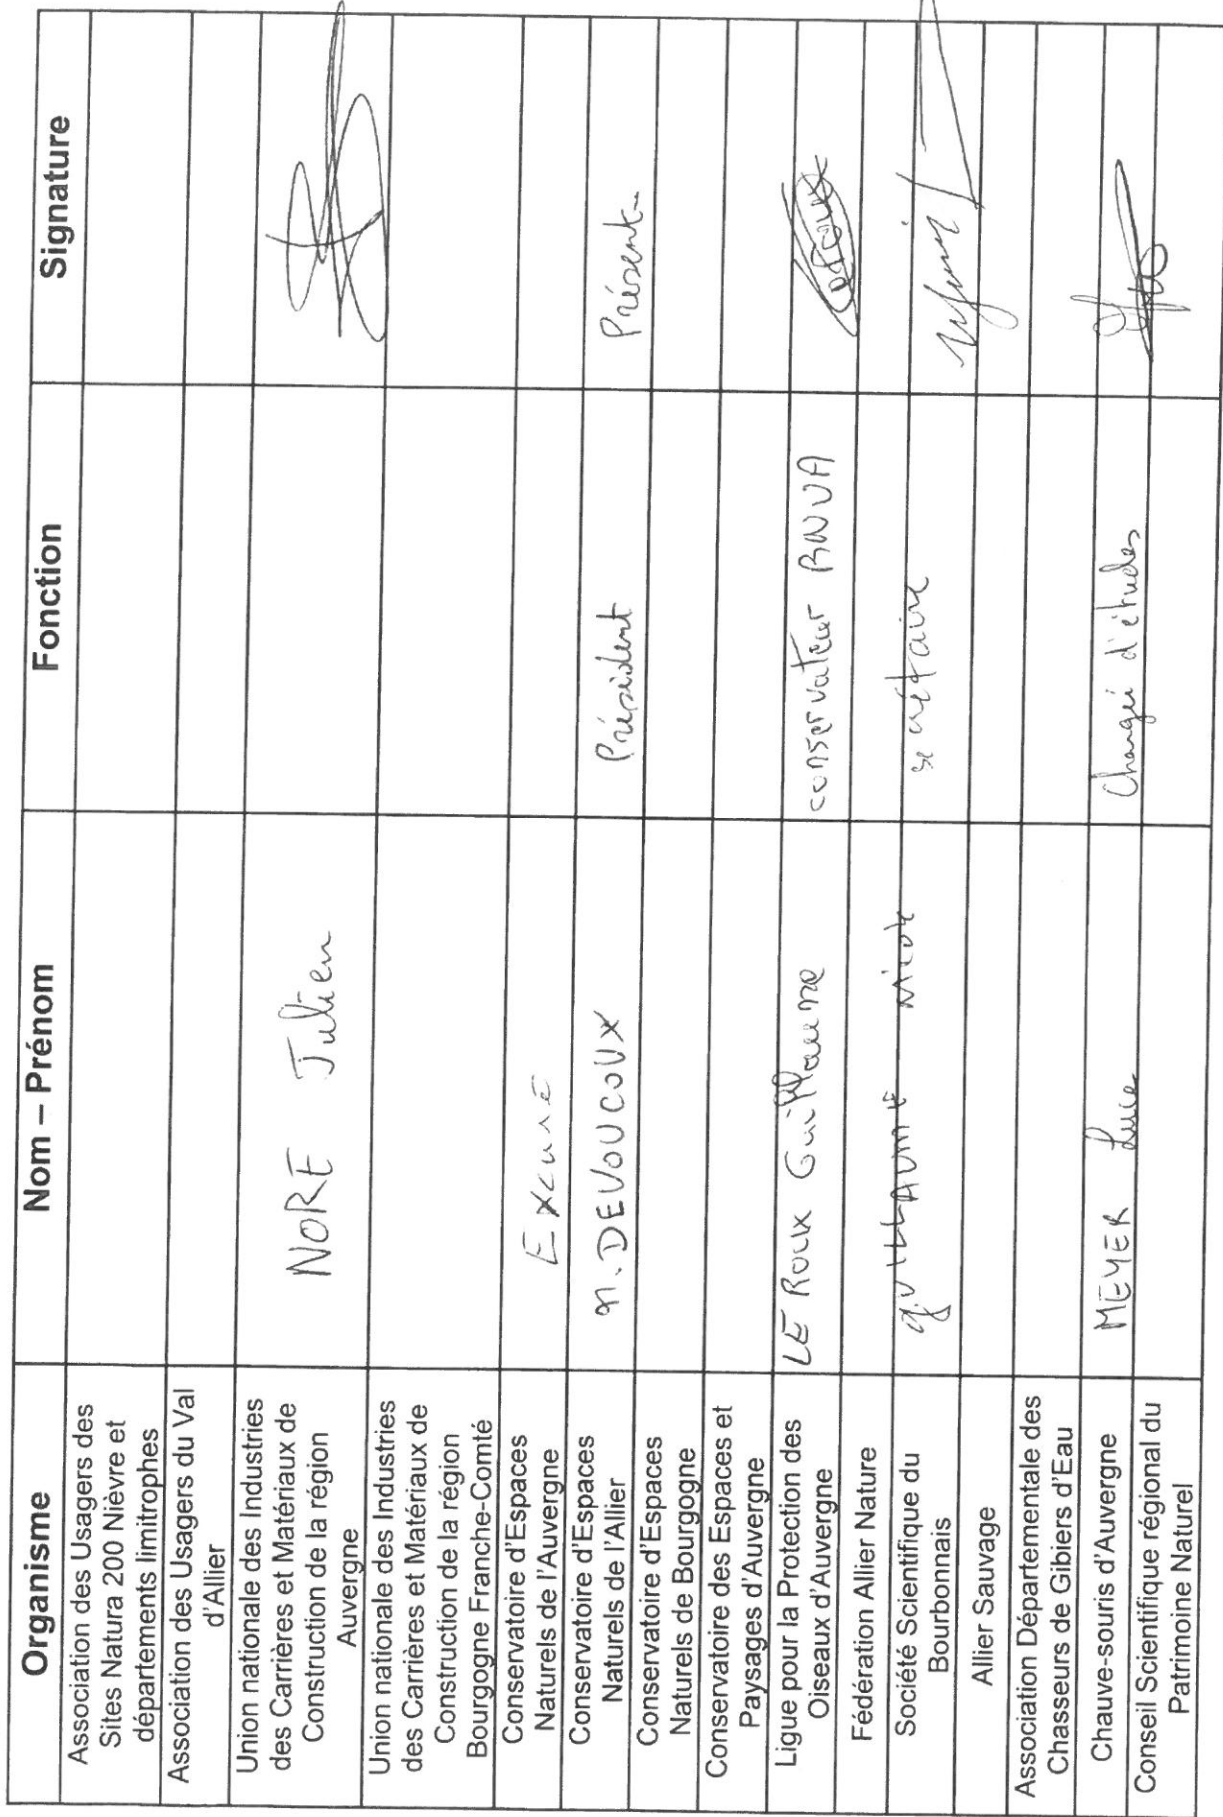 Organisme Nom – Prénom Fonction Signature
Association des Usagers des
Sites Natura 200 Nièvre et
départements limitrophes
Association des Usagers du Val
d'Allier
Union nationale des Industries
des Carrières et Matériaux de
Construction de la région
Auvergne
NORE Julien
Union nationale des Industries
des Carrières et Matériaux de
Construction de la région
Bourgogne Franche-Comté
Conservatoire d'Espaces
Naturels de l'Auvergne
Excusé
Conservatoire d'Espaces
Naturels de l'Allier
M. DEVOUCOUX Président Présent
Conservatoire d'Espaces
Naturels de Bourgogne
Conservatoire des Espaces et
Paysages d'Auvergne
Ligue pour la Protection des
Oiseaux d'Auvergne
LE ROUX Guillaume conservateur RNVA
Fédération Allier Nature
Société Scientifique du
Bourbonnais
secrétaire
Allier Sauvage
Association Départementale des
Chasseurs de Gibiers d'Eau
Chauve-souris d'Auvergne MEYER Lucie Chargée d'études
Conseil Scientifique régional du
Patrimoine Naturel